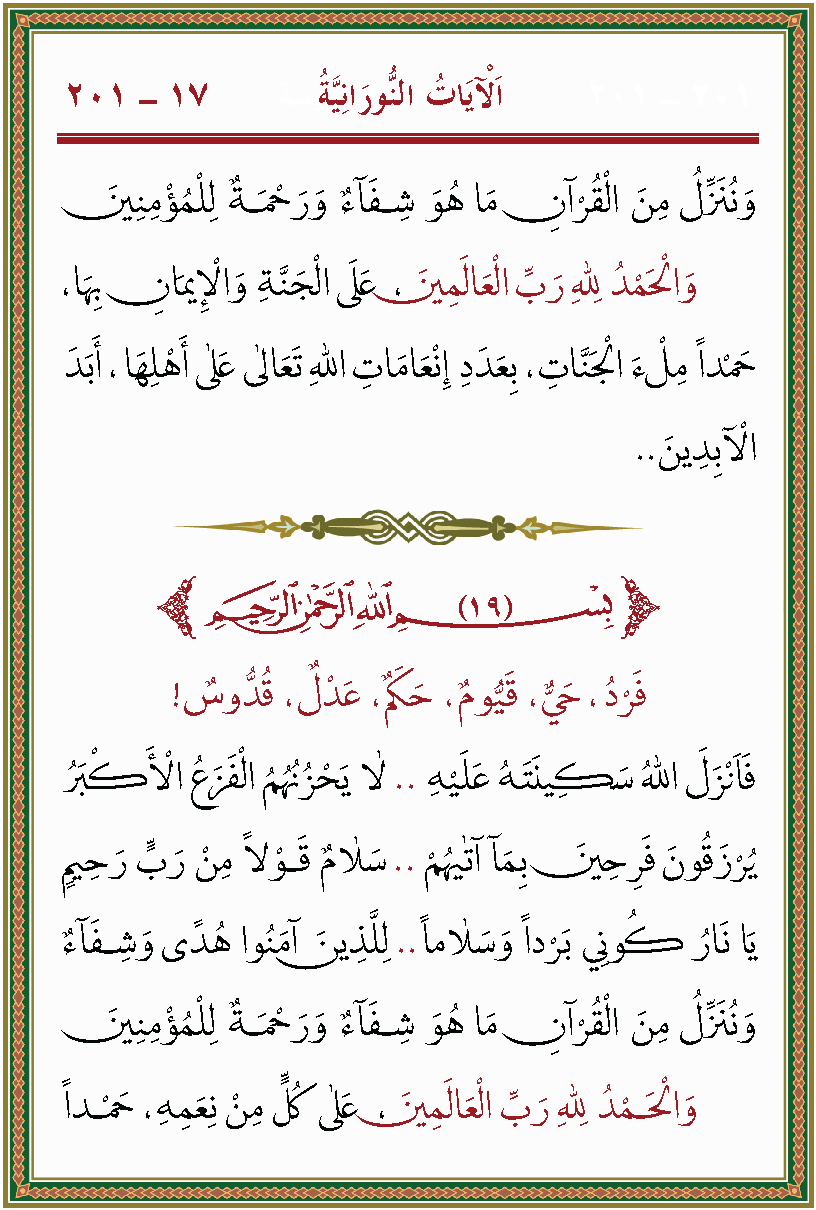 اَلْآيَاتُ النُّورَانِيَّةُ ١٧ – ٢٠١
وَنُنَزِّلُ مِنَ الْقُرْآنِ مَا هُوَ شِفَآءٌ وَرَحْمَةٌ لِلْمُؤْمِنِينَ
وَالْحَمْدُ لِلّٰهِ رَبِّ الْعَالَمِينَ ، عَلَى الْجَنَّةِ وَالْإِيمَانِ بِهَا ،
حَمْداً مِلْءَ الْجَنَّاتِ ، بِعَدَدِ إِنْعَامَاتِ اللهِ تَعَالٰى عَلٰى أَهْلِهَا ، أَبَدَ
الْآبِدِينَ..
بِسْمِ اللهِ الرَّحْمٰنِ الرَّحِيمِ (١٩)
فَرْدٌ ، حَيٌّ ، قَيُّومٌ ، حَكَمٌ ، عَدْلٌ ، قُدُّوسٌ !
فَاَنْزَلَ اللهُ سَكِينَتَهُ عَلَيْهِ .. لَا يَحْزُنُهُمُ الْفَزَعُ الْأَكْبَرُ
يُرْزَقُونَ فَرِحِينَ بِمَآ آتٰيهُمْ .. سَلَامٌ قَوْلاً مِنْ رَبٍّ رَحِيمٍ
يَا نَارُ كُونِي بَرْداً وَسَلَاماً .. لِلَّذِينَ آمَنُوا هُدًى وَشِفَآءٌ
وَنُنَزِّلُ مِنَ الْقُرْآنِ مَا هُوَ شِفَآءٌ وَرَحْمَةٌ لِلْمُؤْمِنِينَ
وَالْحَمْدُ لِلّٰهِ رَبِّ الْعَالَمِينَ ، عَلٰى كُلٍّ مِنْ نِعَمِهِ ، حَمْداً